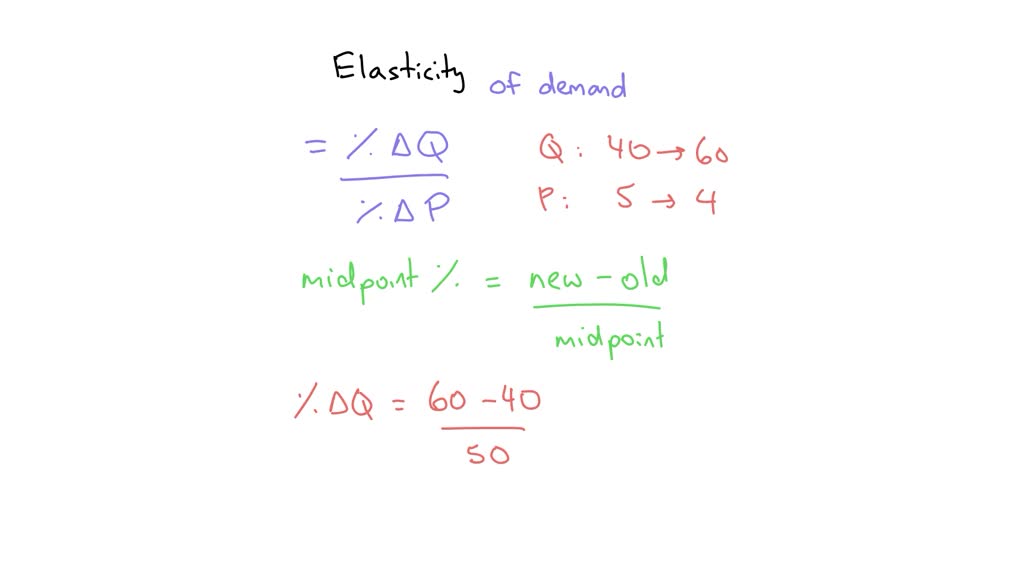 Elasticity of demand
= % ΔQ / % ΔP
Q: 40 → 60
P: 5 → 4
midpoint % = new - old / midpoint
% ΔQ = 60 - 40 / 50